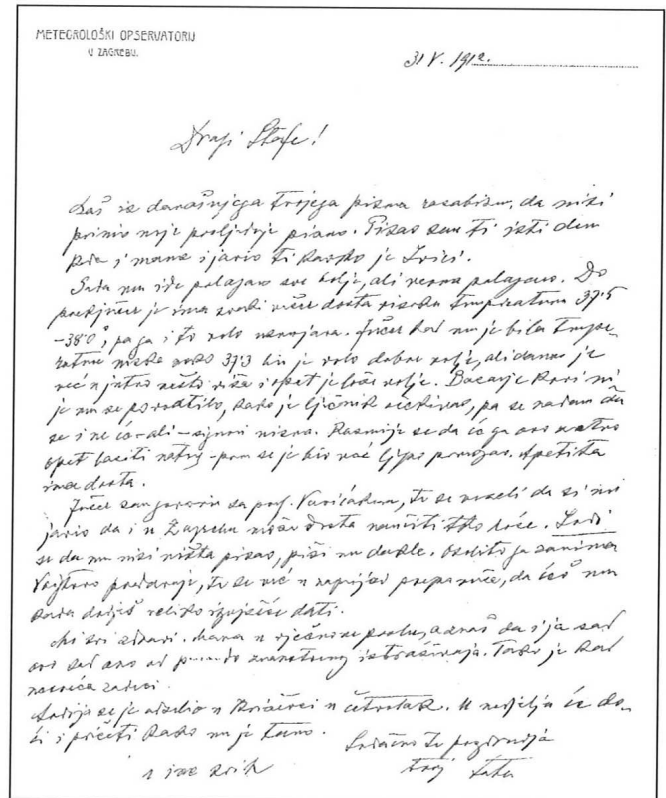 METEOROLOŠKI OPSERVATORIJ
U ZAGREBU.
31 V. 1912.
Dragi Stefe!
Baš iz današnjega tvojega pisma razabirem, da nisi
primio moje posljednje pismo. Pisao sam ti isti dan
kada i mama i javio ti kako je Ivici.
Sada mu ide polagano sve bolje, ali veoma polagano. Do
prekjučer je imao svaki večer dosta visoku temperaturu 37·5
-38·0°, pa ga i to vrlo uznojava. Jučer kad mu je bila tempe-
ratura niska oko 37·3 bio je vrlo dobre volje, ali danas je
već u jutro nešto viša i opet je loše volje. Bacanje krvi ni
je mu se povratilo, kako je liječnik očekivao, pa se nadam da
se i ne će - ali - sigurni nismo. Razumije se da će ga ovo
opet baciti natrag - pa se je bio već lijepo pomogao. Apetita
ima dosta.
Jučer sam govorio sa prof. Varićakom, te se veseli da si mi
javio da i u Zagrebu može dosta naučiti tko hoće.
se da mu nisi ništa pisao, piši mu dakle. Osobito ga zanima
predavanje, te se već u naprijed da ćeš mu
kada dodješ veliko izvješće dati.
Mi svi zdravi. Mama u vječnom poslu, a danas sam i ja sad
ovo sad ono od znanstvenog istraživanja. Tako je kad
Andrija se je odselio u Križevce u četvrtak. U nedjelju će do-
ći i pričati kako mu je tamo.
Srdačno te pozdravlja
tvoj tata